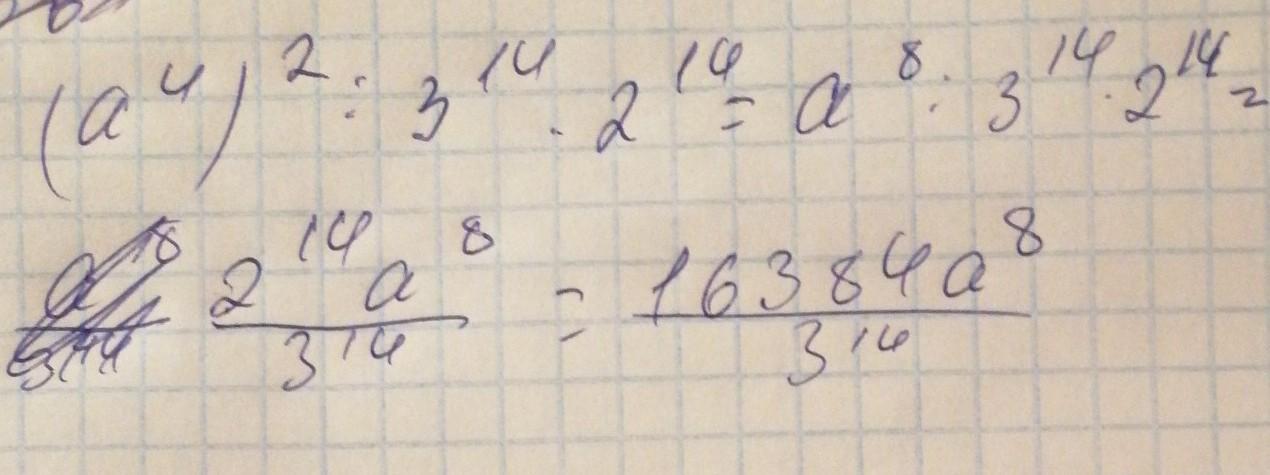 (a⁴)² : 3¹⁴ · 2¹⁴ = a⁸ : 3¹⁴ · 2¹⁴ =
2¹⁴a⁸/3¹⁴ = 16384a⁸/3¹⁴